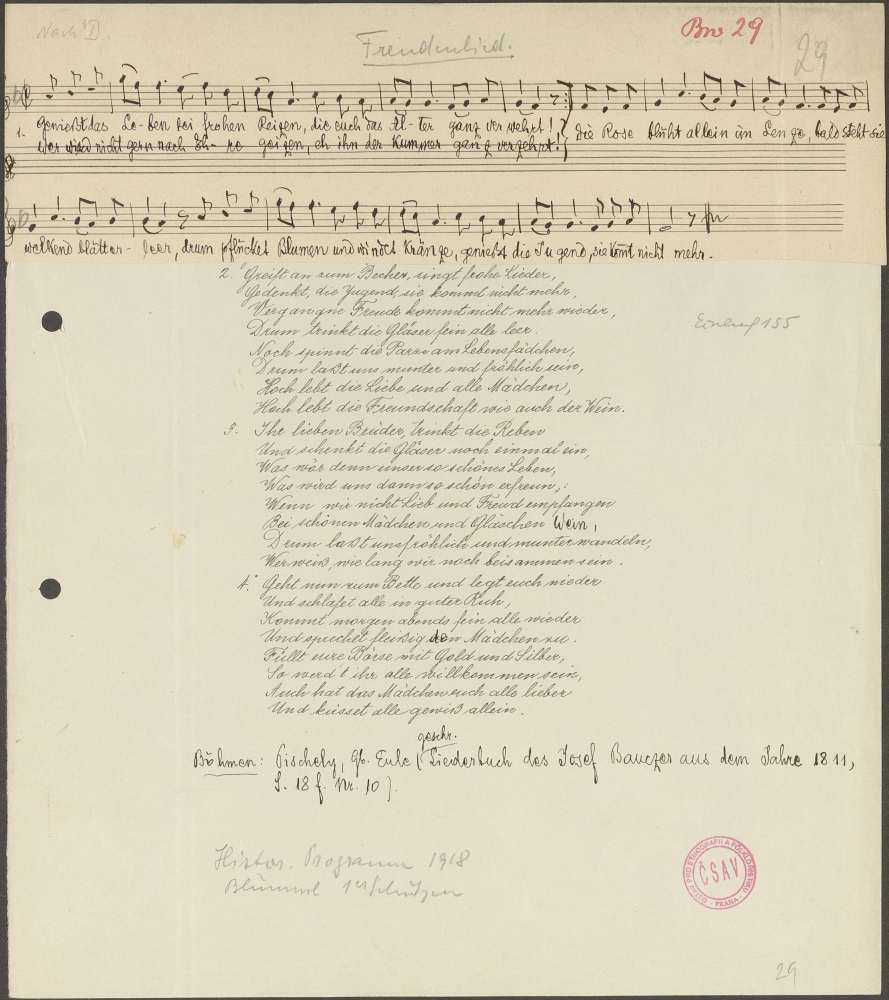 Nach D.
Freudenlied.
Bw 29
29
1. Genießt das Le-ben bei frohen Reizen, die euch das Al-ter ganz verwehrt! die Rose blüht allein im Lenze, bald steht sie
Wer wird nicht gern nach Eh-re geizen, eh ihn der Kummer ganz verzehrt!
welkend blätter-leer, drum pflücket Blumen und windet Kränze, genießt die Jugend, sie kömt nicht mehr.
2. Greift an zum Becher, singt frohe Lieder,
Gedenkt, die Jugend, sie kommt nicht mehr,
Vergangne Freude kommt nicht mehr wieder,
Drum trinkt die Gläser fein alle leer.
Noch spinnt die Parze am Lebensfädchen,
Drum laßt uns munter und fröhlich sein,
Hoch lebt die Liebe und alle Mädchen,
Hoch lebt die Freundschaft wie auch der Wein.
3. Ihr lieben Brüder, trinkt die Reben
Und schenkt die Gläser noch einmal ein,
Was wär denn unser so schönes Leben,
Was wird uns dann so schön erfreun,:
Wenn wir nicht Lieb und Freud empfangen
Bei schönen Mädchen und Gläschen Wein,
Drum laßt uns fröhlich und munter wandeln,
Wer weiß, wie lang wir noch beisammen sein.
4. Geht nun zum Bette und legt euch nieder
Und schlafet alle in guter Ruh,
Kommt morgen abends fein alle wieder
Und sprechet fleißig den Mädchen zu.
Füllt eure Börse mit Gold und Silber,
So werd't ihr alle willkommen sein,
Auch hat das Mädchen euch alle lieber
Und küsset alle gewiß allein.
geschr.
Böhmen: Pischely, Gb. Eule (Liederbuch des Josef Bauczer aus dem Jahre 1811,
S. 18 f. Nr. 10).
Histor. Programm 1918
ÚSTAV PRO ETNOGRAFII A FOLKLORISTIKU
ČSAV
PRAHA
29